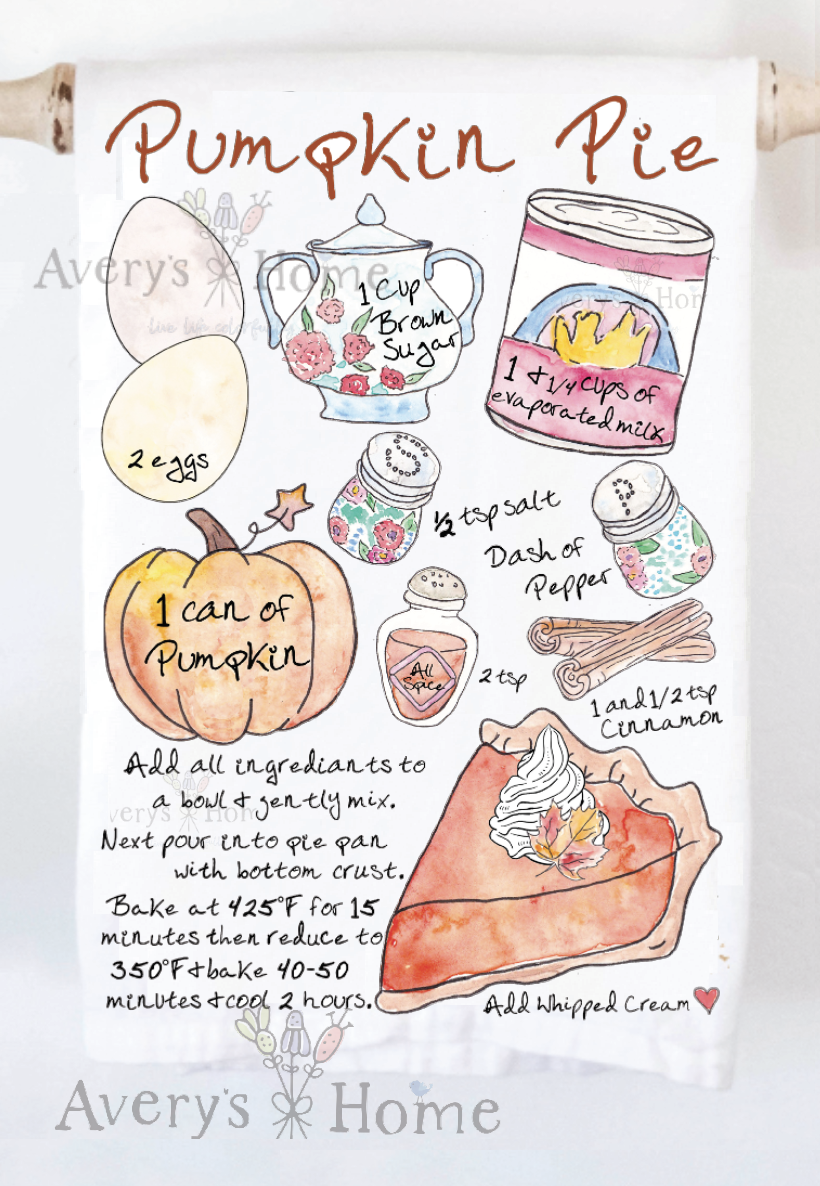 Pumpkin Pie
Avery's Home
live life colorfully
2 eggs
1 Cup
Brown
Sugar
Avery's Home
1 & 1/4 cups of
evaporated milk
S
1/2 tsp salt
P
Dash of
Pepper
1 can of
Pumpkin
All
Spice
2 tsp
1 and 1/2 tsp
Cinnamon
Add all ingrediants to
a bowl & gently mix.
Avery's Home
Next pour into pie pan
with bottom crust.
Bake at 425°F for 15
minutes then reduce to
350°F & bake 40-50
minutes & cool 2 hours.
Add Whipped Cream
Avery's Home